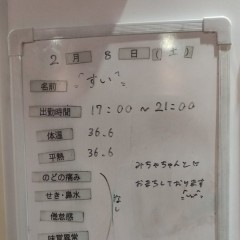 2 月 8 日 (土)
名前 "すい"
出勤時間 17:00 ~ 21:00
体温 36.6
平熱 36.6
のどの痛み
せき・鼻水
倦怠感
味覚異常
なし
みちゃちゃんと
おまちしております